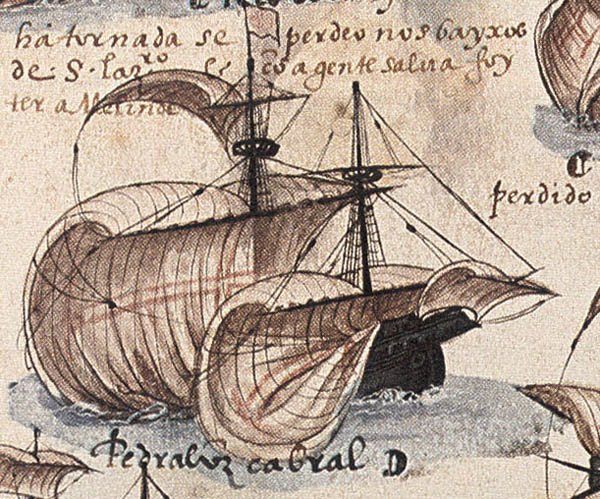 há tornada se perdeo nos bayxos
de S. Lazro e a gente salva foy
ter a Melinde
perdido
Pedraluz cabral D